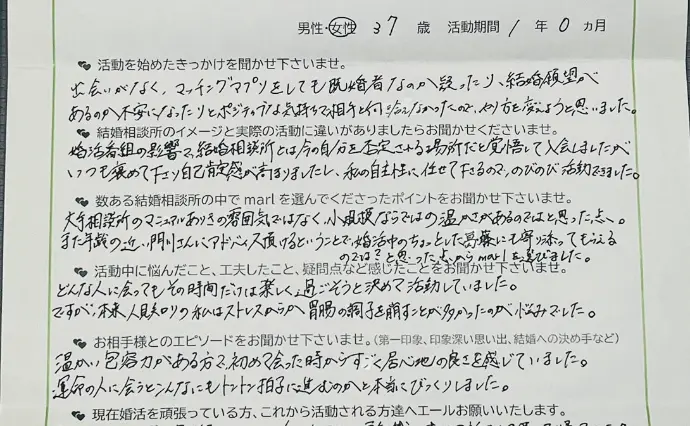 男性・女性 37 歳 活動期間 1 年 0 カ月
活動を始めたきっかけを聞かせ下さいませ。
出会いがなく、マッチングアプリをしても既婚者なのか疑ったり、結婚願望が
あるのか不安になったりとポジティブな気持ちで相手と向き合えなかったので、やり方を変えようと思いました。
結婚相談所のイメージと実際の活動に違いがありましたらお聞かせくださいませ。
婚活番組の影響で、結婚相談所とは今の自分を否定される場所だと覚悟して入会しましたが
いつも褒めて下さり自己肯定感が高まりましたし、私の自主性に任せて下さるので、のびのび活動できました。
数ある結婚相談所の中で marl を選んでくださったポイントをお聞かせ下さいませ。
大手相談所のマニュアルありきの雰囲気ではなく、小規模ならではの温かさがあるのではと思った点へ。
また年齢の近い門川さんにアドバイス頂けるということで、婚活中のちょっとした葛藤にも寄り添ってもらえる
のでは?と思った点からmarlを選びました。
活動中に悩んだこと、工夫したこと、疑問点など感じたことをお聞かせ下さいませ。
どんな人に会ってもその時間だけは楽しく過ごそうと決めて活動していました。
ですが、本来人見知りの私はストレスからか胃腸の調子を崩すことが多かったのが悩みでした。
お相手様とのエピソードをお聞かせ下さいませ。(第一印象、印象深い思い出、結婚への決め手など)
温かい包容力がある方で、初めて会った時からすごく居心地の良さを感じていました。
運命の人に会うとこんなにもトントン拍子に進むのかと本当にびっくりしました。
現在婚活を頑張っている方、これから活動される方達へエールお願いいたします。